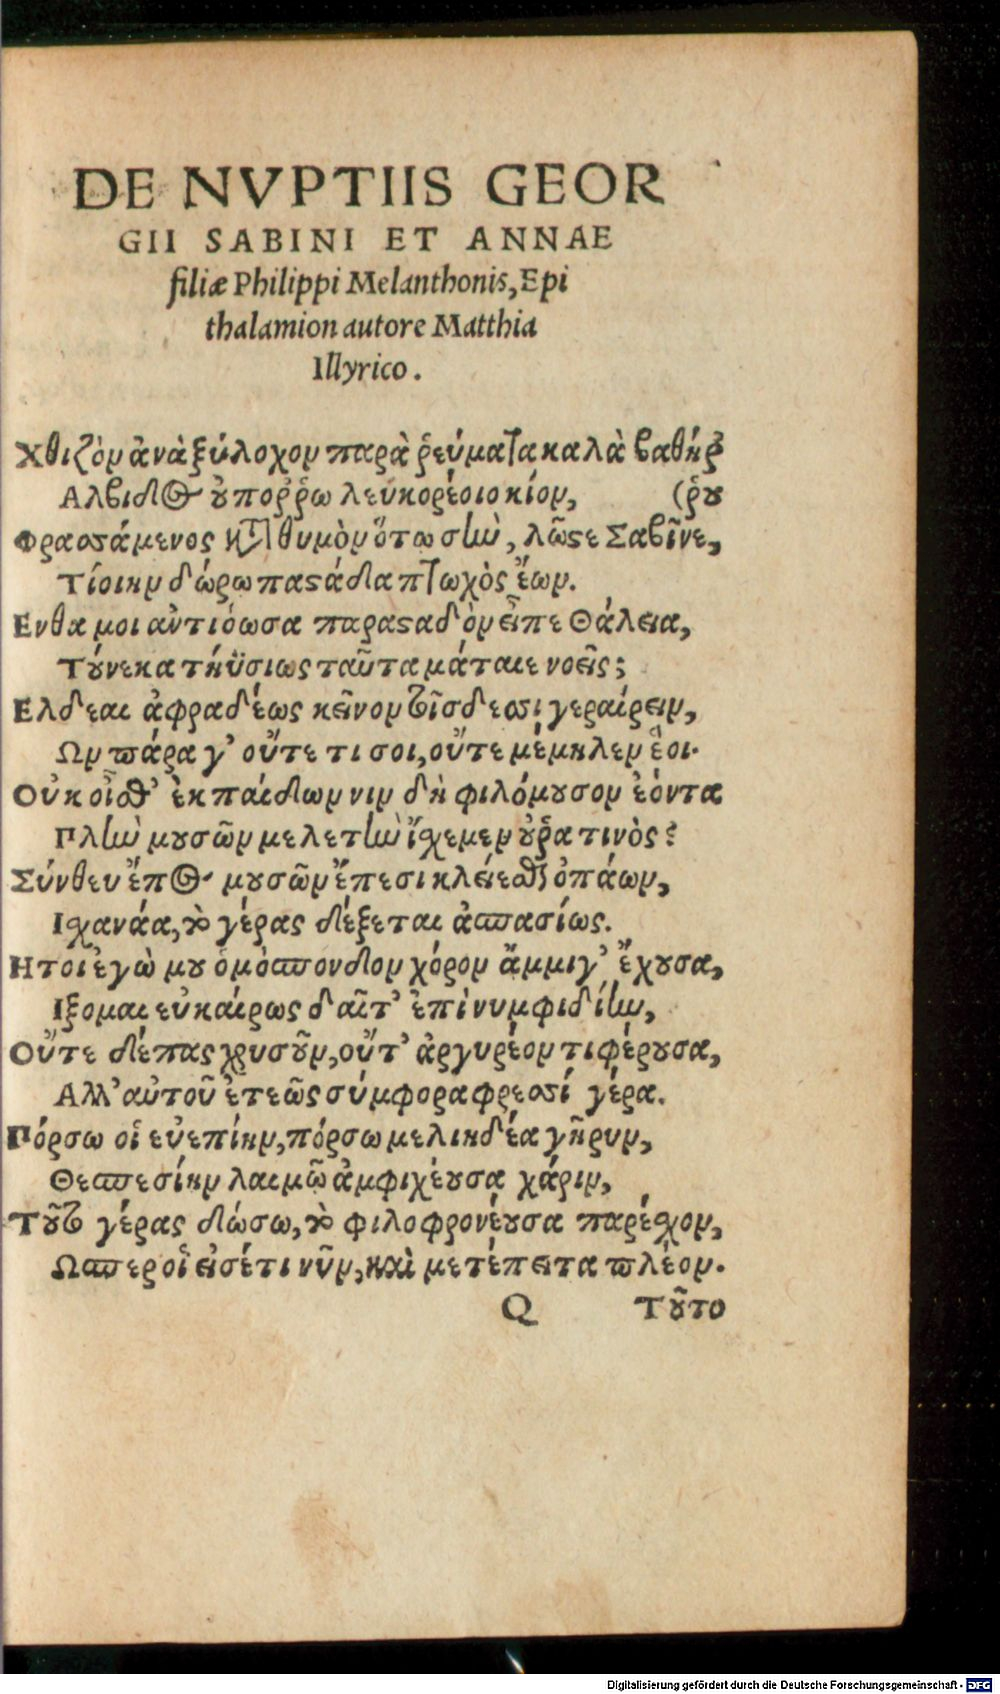 DE NVPTIIS GEOR
GII SABINI ET ANNAE
filiæ Philippi Melanthonis, Epi
thalamion autore Matthia
Illyrico.
Χθιζὸν ἀνὰ ξύλοχον παρὰ ῥεύματα καλὰ βαθήῤ
Αλβιδος ὑποῤῥω λευκορέοιο κίον, (ῥου
Φρασσάμενος κατὰ θυμὸν ὅτω σὺν, λῶστε Σαβῖνε,
Τίοιην δώρω παστάδια πτωχὸς ἔων.
Ενθα μοι αὐτιόωσα παρασαδὸν εἶπε Θάλεια,
Τούνεκα τηϋσίως ταῦτα μάταιε νοεῖς;
Ελδεαι ἀφραδέως κεῖνον τοῖσδεσσι γεραίρειν,
Ων πάρα γ' οὔτε τι σοι, οὔτε μέμηλεν ἑοι.
Οὐκ οἶσθ' ἐκ παίδων νιν δὴ φιλόμουσον ἐόντα
Πλὴν μουσῶν μελετὴν ἴχεμεν οὐρα τινὸς;
Σύνθευ ἔπος μουσῶν ἔπεσι κλείεσθαι ὀπάων,
Ιχανάα, καὶ γέρας δέξεται ἀσπασίως.
Ητοι ἐγὼ μου ὁμόσπονδον χόρον ἄμμιγ' ἔχουσα,
Ιξομαι εὐκαίρως δαῖτ' ἐπὶ νυμφιδίην,
Οὔτε δέπας χρυσοῦν, οὔτ' ἀργυρέον τι φέρουσα,
Αλλ' αὐτοῦ ἐτεῶς σύμφορα φρεσσί γέρα.
Πόρσω οἱ εὐεπίην, πόρσω μελιηδέα γῆρυν,
Θεσπεσίην λαιμῷ ἀμφιχέουσα χάριν,
Τοῦτο γέρας δώσω, καὶ φιλοφρονέουσα παρέσχον,
Ωσπερ οἷ εἰσέτι νῦν, καὶ μετέπειτα πλέον.
Q Τοῦτο
Digitalisierung gefördert durch die Deutsche Forschungsgemeinschaft - DFG